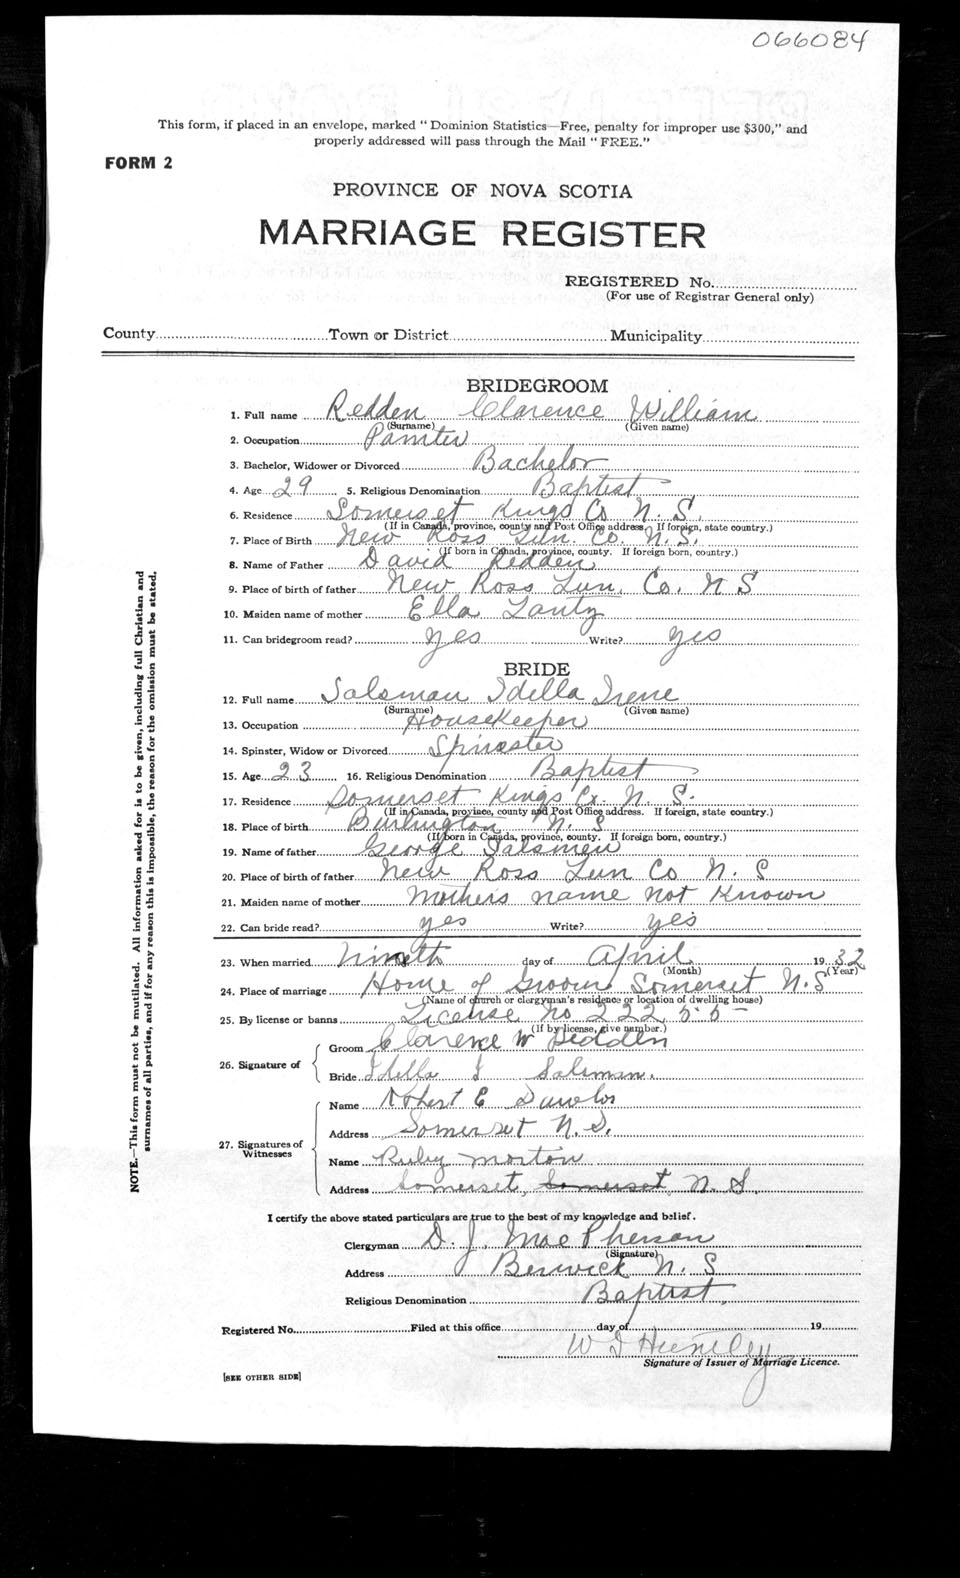 066084
This form, if placed in an envelope, marked "Dominion Statistics—Free, penalty for improper use $300," and
properly addressed will pass through the Mail "FREE."
FORM 2
PROVINCE OF NOVA SCOTIA
MARRIAGE REGISTER
REGISTERED No.
(For use of Registrar General only)
County Town or District Municipality
BRIDEGROOM
1. Full name Redden Clarence William
(Surname) (Given name)
2. Occupation
3. Bachelor, Widower or Divorced Bachelor
4. Age 29 5. Religious Denomination Baptist
6. Residence Somerset Kings Co N. S.
(If in Canada, province, county and Post Office address. If foreign, state country.)
7. Place of Birth New Ross Lun. Co. N. S.
(If born in Canada, province, county. If foreign born, country.)
8. Name of Father David Redden
9. Place of birth of father New Ross Lun. Co. N S
10. Maiden name of mother Ella Lantz
11. Can bridegroom read? yes Write? yes
BRIDE
12. Full name Salsman Idella Irene
(Surname) (Given name)
13. Occupation HouseKeeper
14. Spinster, Widow or Divorced Spinster
15. Age 23 16. Religious Denomination Baptist
17. Residence Somerset Kings Co. N. S.
(If in Canada, province, county and Post Office address. If foreign, state country.)
18. Place of birth Burlington N. S
(If born in Canada, province, county. If foreign born, country.)
19. Name of father George Salsmen
20. Place of birth of father New Ross Lun Co N. S
21. Maiden name of mother Mothers name not Known
22. Can bride read? yes Write? yes
23. When married day of April 19 32
(Month) (Year)
24. Place of marriage Home of Groom Somerset N. S
(Name of church or clergyman's residence or location of dwelling house)
25. By license or banns License no 222 55-
(If by license, give number.)
26. Signature of
Groom Clarence W Redden
Bride Idella I Salsman.
27. Signatures of Witnesses
Name Robert E
Address Somerset N. S.
Name Ruby Morton
Address Somerset, Somerset, N. S.
I certify the above stated particulars are true to the best of my knowledge and belief.
Clergyman D. J. MacPherson
(Signature)
Address Berwick N. S
Religious Denomination Baptist.
Registered No. Filed at this office day of 19
W I Huntley
Signature of Issuer of Marriage Licence.
[SEE OTHER SIDE]
NOTE.—This form must not be mutilated. All information asked for is to be given, including full Christian and
surnames of all parties, and if for any reason this is impossible, the reason for the omission must be stated.